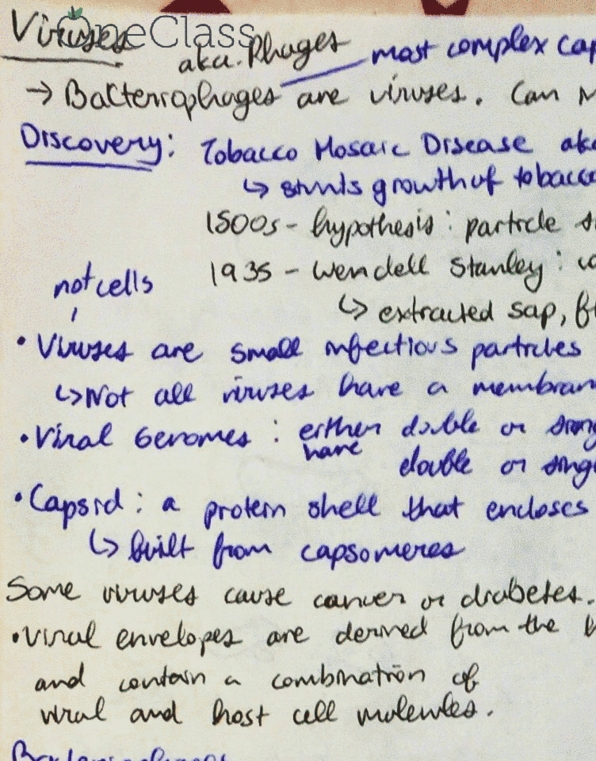 Viruses OneClass
aka. Phages most complex cap
→ Bacteriophages are viruses. Can
Discovery: Tobacco Mosaic Disease aka
↳ stunts growth of tobacco
1500s - hypothesis: particle
1935 - Wendell Stanley:
not cells
↳ extracted sap, f
• Viruses are small infectious particles
↳ Not all viruses have a membran
• Viral Genomes: either double or sing
have double or sing
• Capsid: a protein shell that encloses
↳ built from capsomeres
Some viruses cause cancer or diabetes.
• Viral envelopes are derived from the
and contain a combination of
viral and host cell molecules.